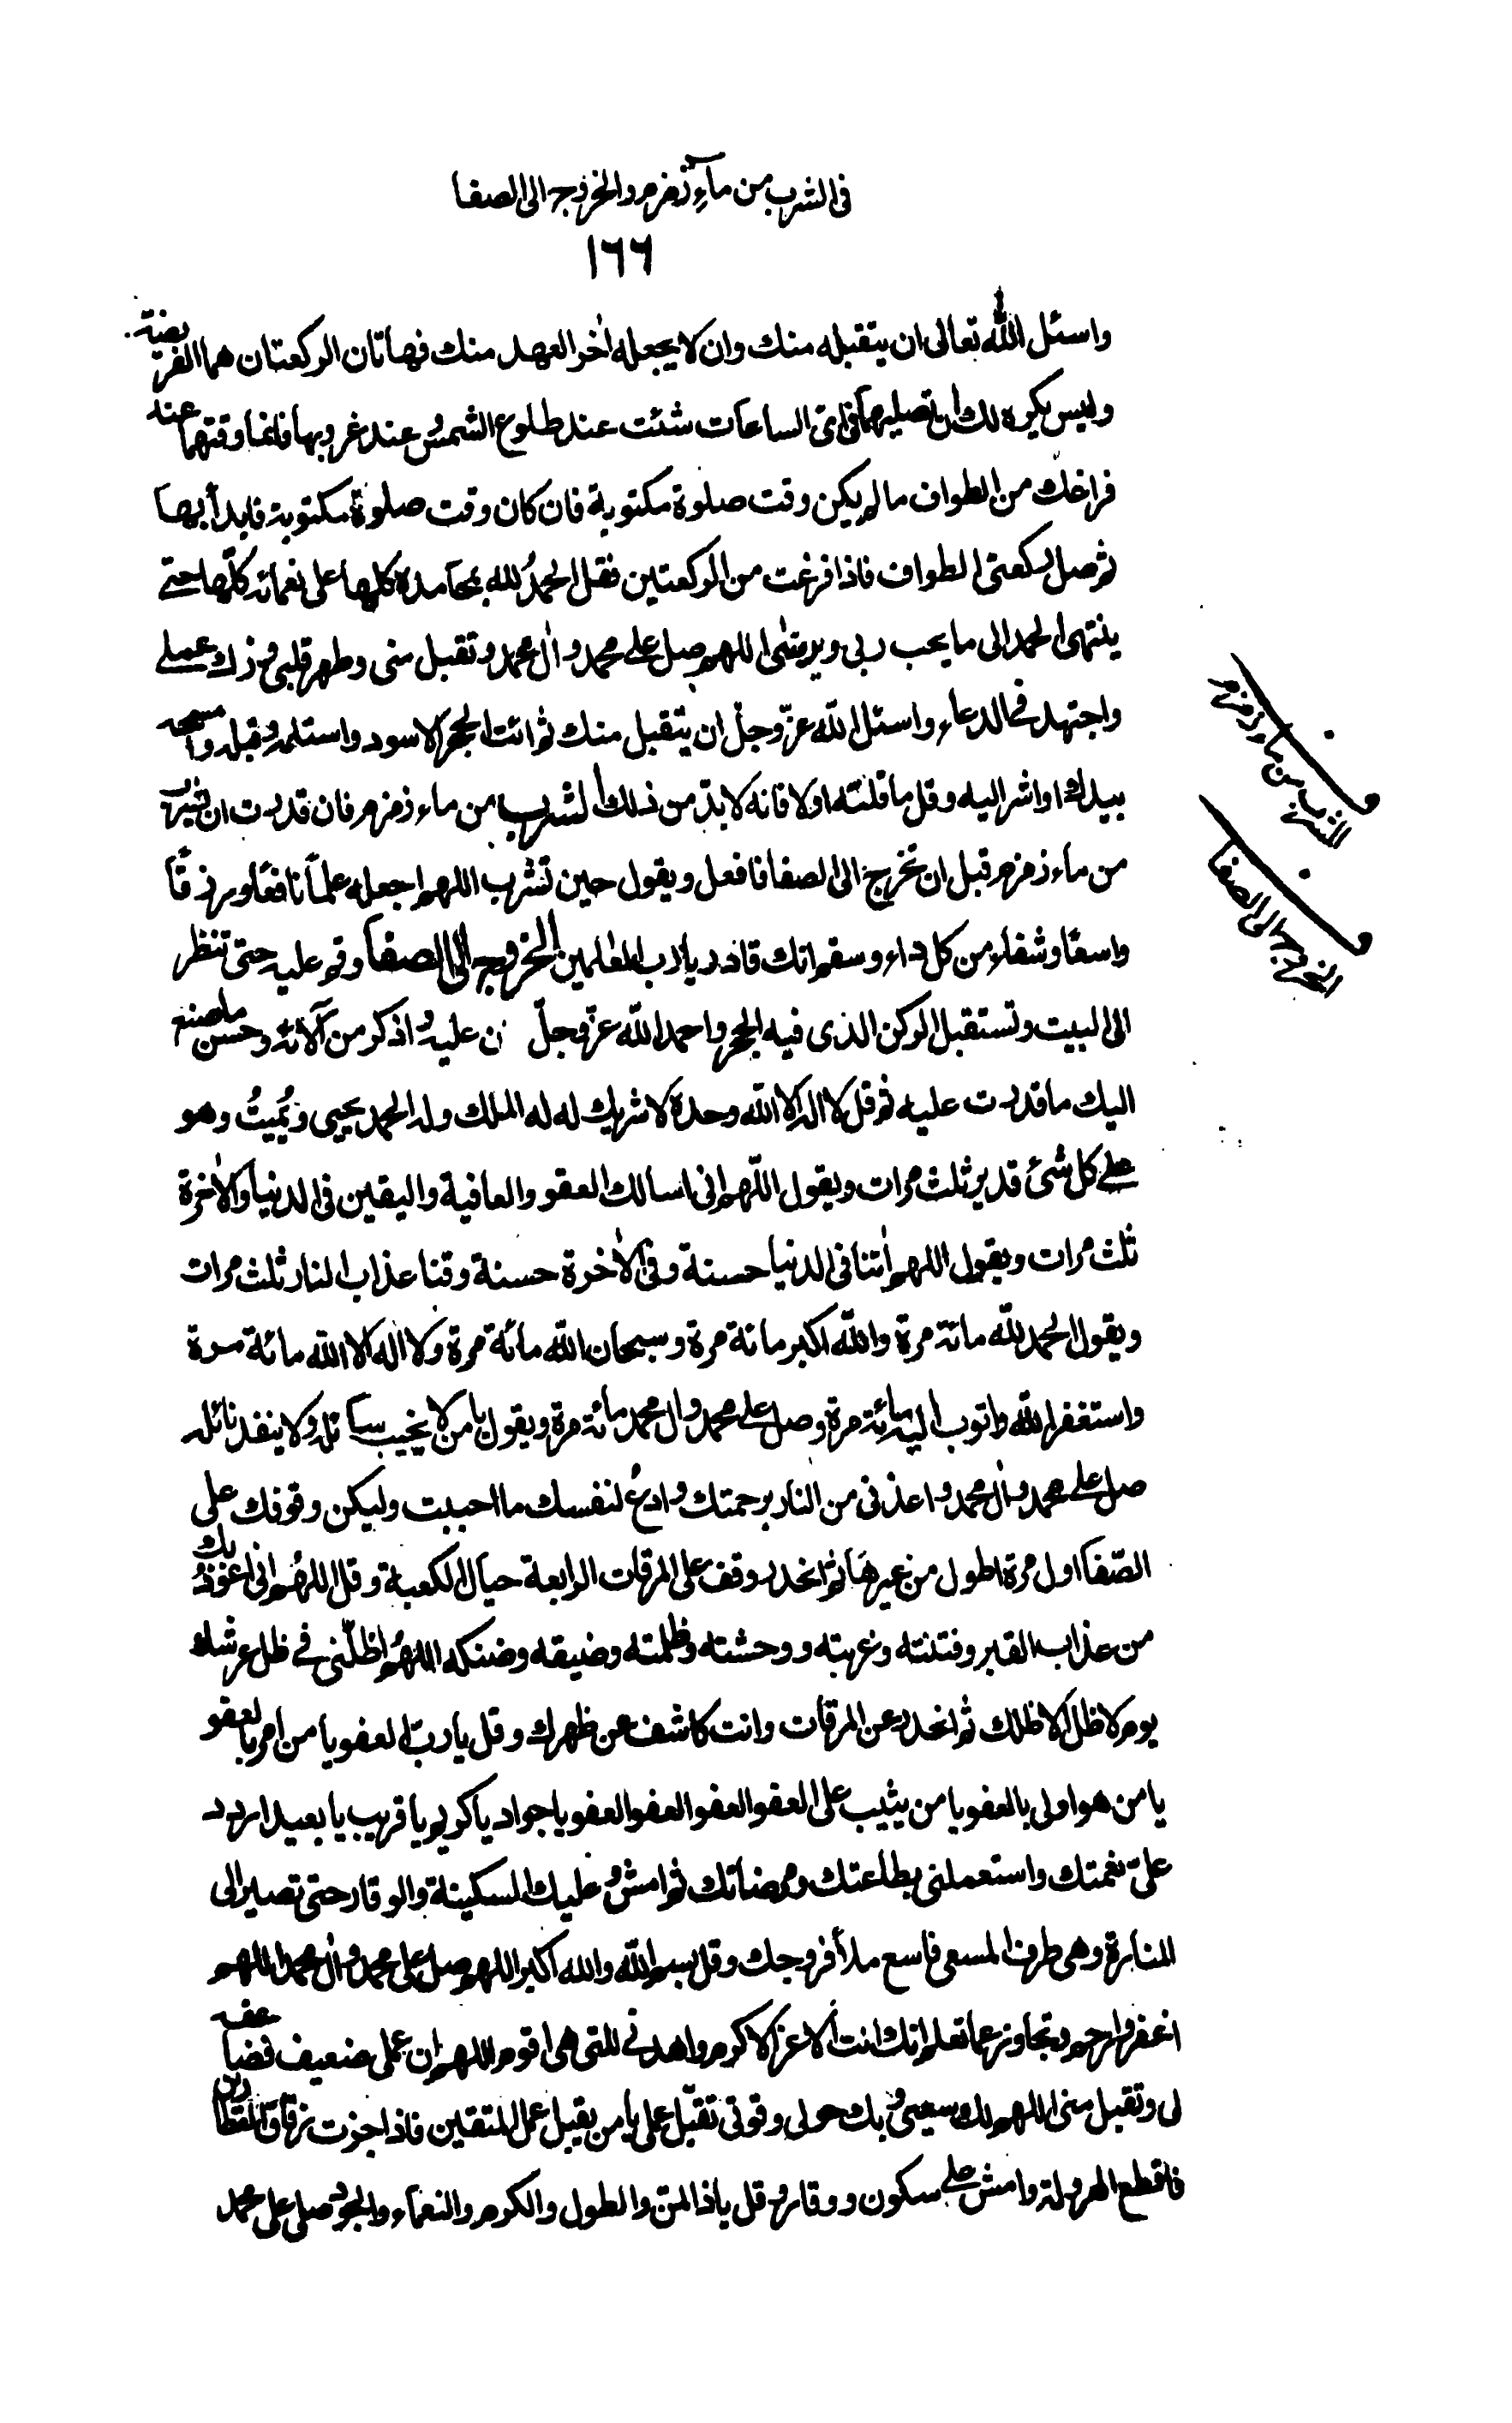 فى الشرب من ماءِ زمزم والخروج الى الصفا
١٦٦
واسئل الله تعالى ان يتقبله منك وان لا يجعله اٰخر العهد منك فهاتان الركعتان هما الفريضة
وليس يكره لك ان تصليهما فى اىّ الساعات شئت عند طلوع الشمس و عند غروبها فانما وقتهما عند
فراغك من الطواف مالم يكن وقت صلوة مكتوبة فان كان وقت صلوة مكتوبة فابدأ بها
ثم صل ركعتى الطواف فاذا فرغت من الركعتين فقل الحمدُ لله بمحامده كلها على نعمائه كلّها حتى
ينتهى الحمد الى ما يحب ربى ويرضٰى اللهم صل على محمد واٰل محمد وتقبل منى وطهر قلبى وزك عملى
واجتهد فى الدعاء واسئل الله عزّ وجلّ ان يتقبل منك ثم ائت الحجر الاسود واستلمه وقبله وامسحه
بيدك او اشر اليه وقل ما قلته اولا فانه لابدّ من ذلك الشرب من ماء زمزم فان قدرت ان تشرب
من ماء زمزم قبل ان تخرج الى الصفا فافعل ويقول حين تشرب اللهم اجعله علماً نافعًا ورزقًا
واسعًا وشفاء من كل داء وسقم انك قادر يا رب العٰلمين الخروج الى الصفا وقم عليه حتى تنظر
الى البيت وتستقبل الركن الذى فيه الحجر واحمد الله عزّ وجلّ ن عليه و اذكر من آلائه وحسن ما صنع
اليك ما قدرت عليه ثم قل لا اله الا الله وحده لا شريك له له الملك وله الحمد يحيى ويُميتُ وهو
على كل شئ قدير ثلث مرات ويقول اللّهم انى اسالك العفو والعافية واليقين فى الدنيا والاٰخرة
ثلث مرات ويقول اللهم اٰتنا فى الدنيا حسنة وفى الاٰخرة حسنة وقنا عذاب النار ثلث مرات
ويقول الحمد لله مائة مرة والله اكبر مائة مرة وسبحان الله مائة مرة ولا اله الا الله مائة مرة
واستغفر الله واتوب اليه مائة مرة وصل على محمد وال محمد مائة مرة ويقول يا من لا يخيب سائله ولا ينفد نائله
صل على محمد واٰل محمد واعذنى من النار برحمتك وادع لنفسك ما احببت وليكن وقوفك على
الصّفا اول مرة اطول من غيرها ثم انحدر وقف على المرقات الرابعة حيال الكعبة وقل اللهُم انى اعوذُ بك
من عذاب القبر وفتنته وغربته ووحشته وظلمته وضيقه وضنكه اللهُم اظلّنى فى ظل عرشك
يوم لا ظل الا ظلك ثم انحدر عن المرقات وانت كاشف عن ظهرك وقل يا ربّ العفو يا من امر بالعفو
يا من هو اولى بالعفو يا من يثيب على العفو العفو العفو العفو يا جواد يا كريم يا قريب يا بعيد اردد
علىّ نعمتك واستعملنى بطاعتك ومرضاتك ثم امش و عليك السكينة والوقار حتى تصير الى
المنارة وهى طرف المسعى فاسع ملأ فروجك وقل بسم الله والله اكبر اللهم صل على محمد واٰل محمد اللهم
اغفر وارحم وتجاوز عما تعلم انك انت الاعز الاكرم واهدنى للتى هى اقوم اللهم ان عملى ضعيف فضاعفه
لى وتقبل منى اللهم لك سعيى و بك حولى وقوتى تقبّل عملى يا من يقبل عمل المتقين فاذا جزت زقاق العطارين
فاقطع الهرولة وامش على سكون ووقار و قل يا ذا المنّ والطول والكرم والنعماء والجود صلى على محمد
الشرب من ماء زمزم
الخروج الى الصفا